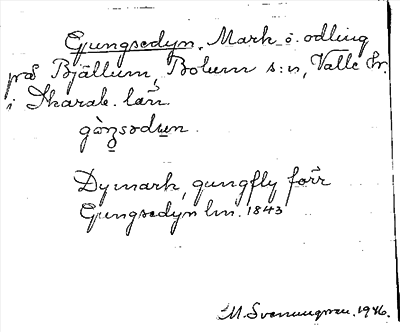 Gungsedyn. Mark o. odling
på Bjällum, Bolum s:n, Valle hr.
i Skarab. län.
Dymark, gungfly förr
Gungsedyn lm. 1843
M. Svenungsson. 1946.